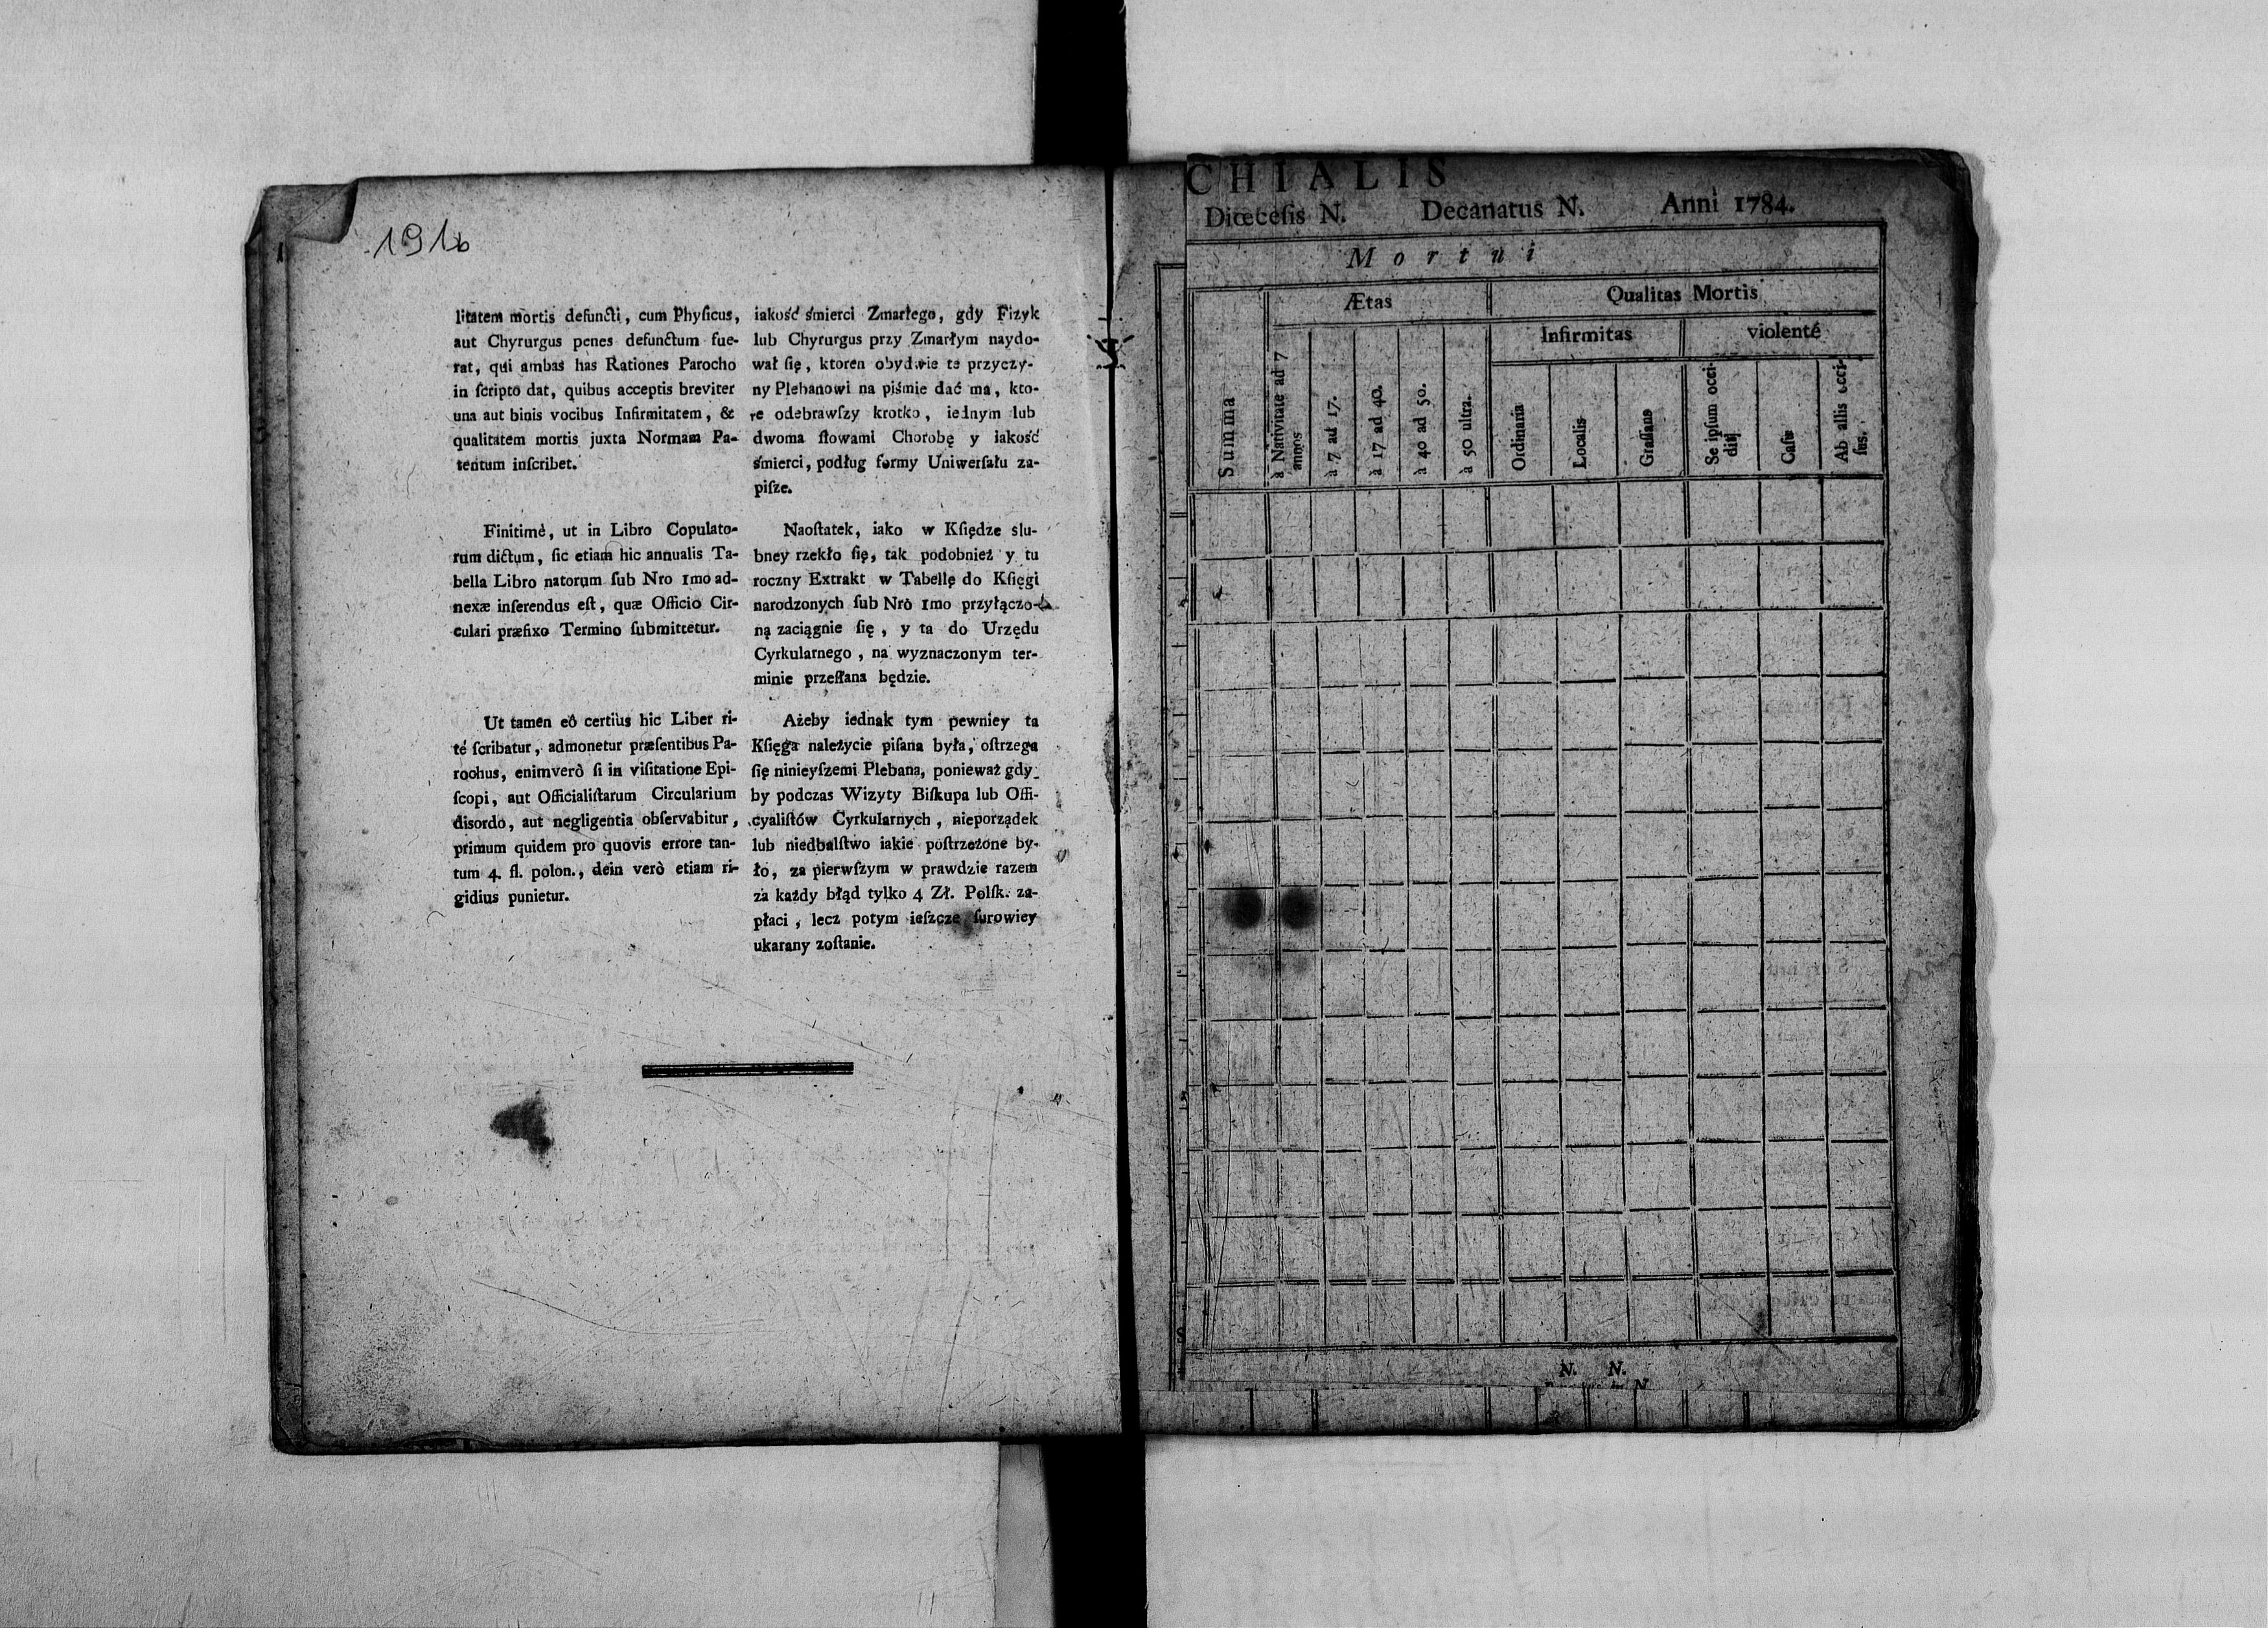 191b
litatem mortis defuncti, cum Phyſicus,
aut Chyrurgus penes defunctum fue-
rat, qui ambas has Rationes Parocho
in ſcripto dat, quibus acceptis breviter
una aut binis vocibus Infirmitatem, &
qualitatem mortis juxta Normam Pa-
tentum inſcribet.
Finitimè, ut in Libro Copulato-
rum dictum, ſic etiam hic annualis Ta-
bella Libro natorum ſub Nro 1mo ad-
nexæ inferendus eſt, quæ Officio Cir-
culari præfixo Termino ſubmittetur.
Ut tamen eô certius hic Liber ri-
té ſcribatur, admonetur præſentibus Pa-
rochus, enimverò ſi in viſitatione Epi-
ſcopi, aut Officialiſtarum Circularium
disordo, aut negligentia obſervabitur,
primum quidem pro quovis errore tan-
tum 4. fl. polon., dein verò etiam ri-
gidius punietur.
iakość śmierci Zmarłego, gdy Fizyk
lub Chyrurgus przy Zmarłym naydo-
wał się, ktoren obydwie te przyczy-
ny Plebanowi na piśmie dać ma, kto-
re odebrawſzy krotko, iednym lub
dwoma ſłowami Chorobę y iakość
śmierci, podług formy Uniwerſału za-
piſze.
Naoſtatek, iako w Kſiędze ślu-
bney rzekło ſię, tak podobnież y tu
roczny Extrakt w Tabellę do Kſięgi
narodzonych ſub Nrò 1mo przyłączo-
ną zaciągnie ſię, y ta do Urzędu
Cyrkularnego, na wyznaczonym ter-
minie przeſłana będzie.
Ażeby iednak tym pewniey ta
Kſięga należycie piſana była, oſtrzega
ſię ninieyſzemi Plebana, ponieważ gdy
by podczas Wizyty Biſkupa lub Offi-
cyaliſtów Cyrkularnych, nieporządek
lub niedbalſtwo iakie poſtrzeżone by-
ło, za pierwſzym w prawdzie razem
za każdy błąd tylko 4 Zł. Polſk. za-
płaci, lecz potym ieſzcze ſurowiey
ukarany zoſtanie.
CHIALIS
Diœceſis N. Decanatus N. Anni 1784.
Mortui
Summa
Ætas
Qualitas Mortis
Infirmitas
violenté
à Nativitate ad 7
annos
à 7 ad 17.
à 17 ad 40.
à 40 ad 50.
à 50 ultra.
Ordinaria
Localis
Graſſans
Se ipſum occi-
dit
Caſu
Ab aliis occi-
ſus.
N. N.
N